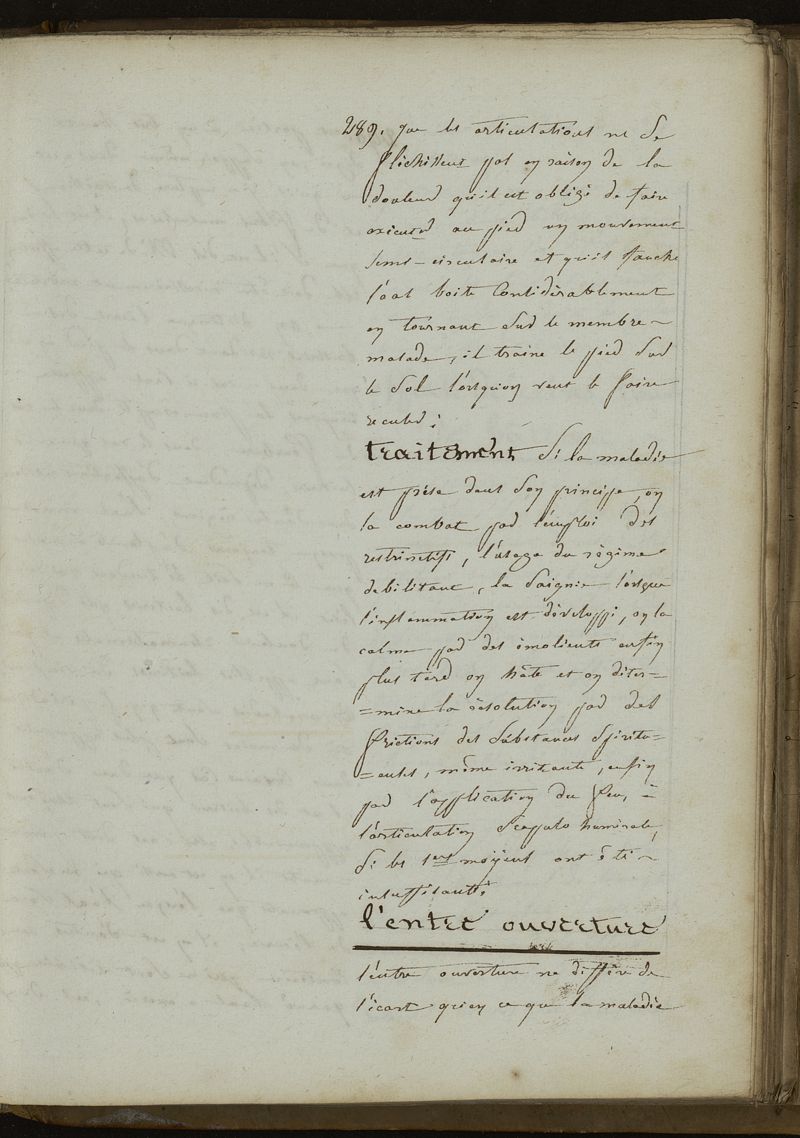 289. que les articulations ne se
fléchissent pas en raison de la
douleur qu'il est obligé de faire
exécuter au pied un mouvement
semi-circulaire et qu'il fauche
l'oal boite Considérablement
en tournant Sur le membre
malade, il traine le pied Sur
le Sol l'orsqu'on veut le faire
reculer;
traitement Si la maladie
est prise dans Son principe, on
la combat par l'emploi des
restrinctifs, l'usage du régime
debilitant, la Saignie l'orsque
l'inflammation est développé, on la
calme par des émolients enfin
plus tard on hâte et on déter=
=mine la résolution par des
frictions des Substances Spiritu=
=euses, même irritante, enfin
par l'application du feu, à
l'articulation Scapulo humérale,
Si les 1ers moÿens ont été
insuffisants;
l'entre ouverture
l'entre ouverture ne diffère de
l'écart qu'en ce que la maladie